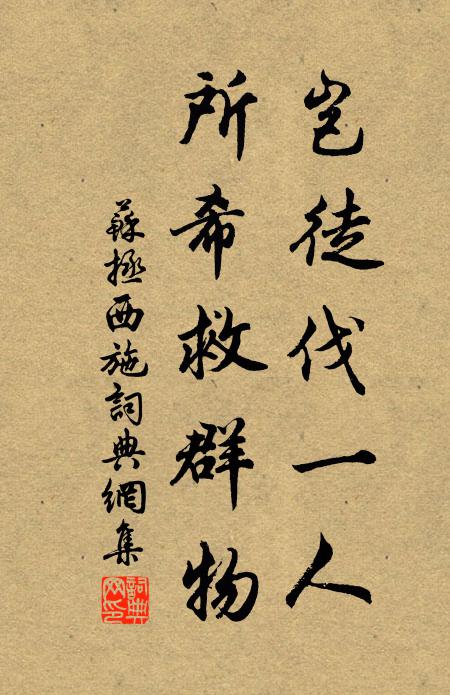 豈徒伐一人
所希救群物
蘇拯西施詞典網集
詞典網印